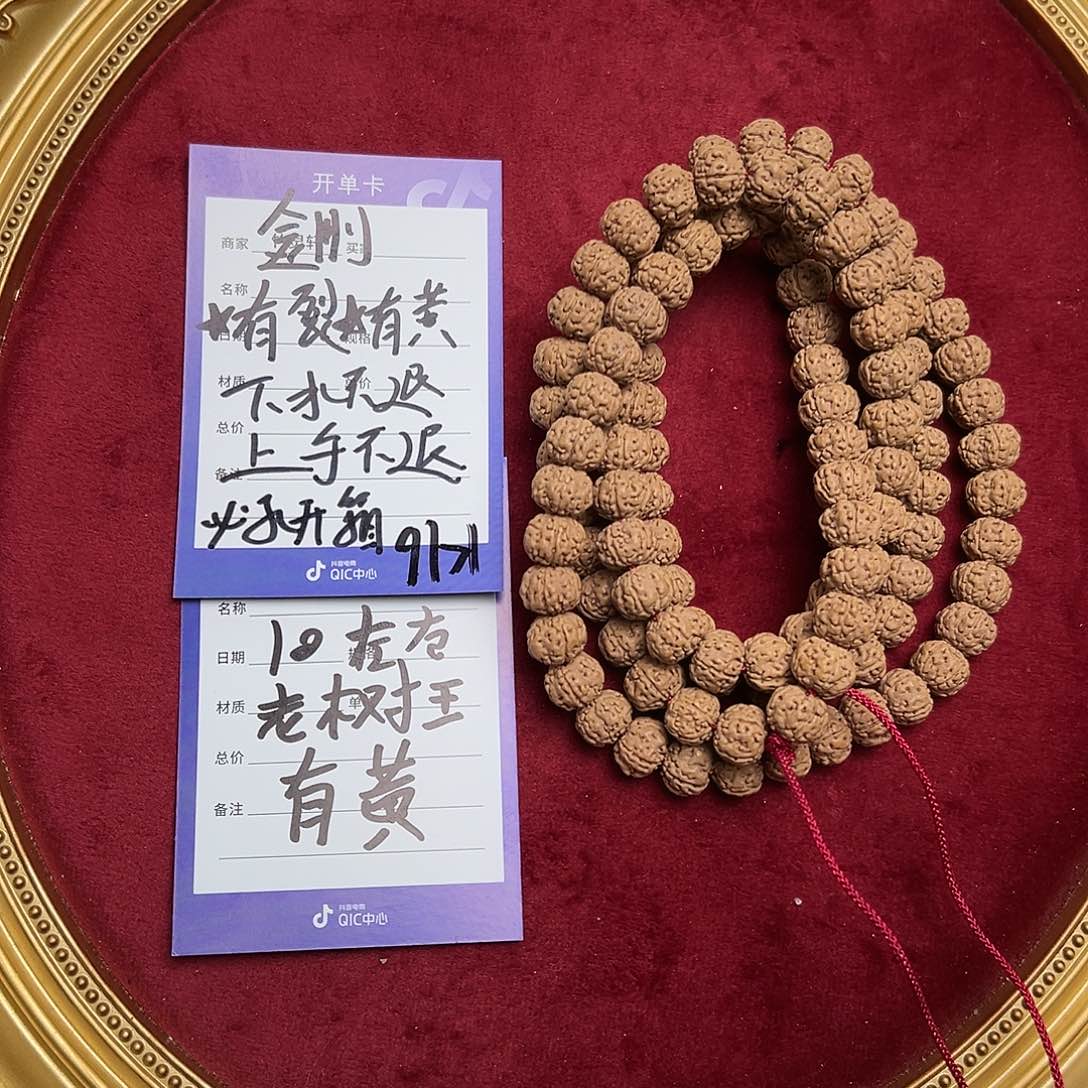 开单卡
商家 金刚
名称
有裂 有黄
材质 下水不退
总价 上手不退
备注
必录开箱
抖音电商
QIC中心
名称
日期 10 左右
材质 老树王
总价 有黄
备注
抖音电商
QIC中心